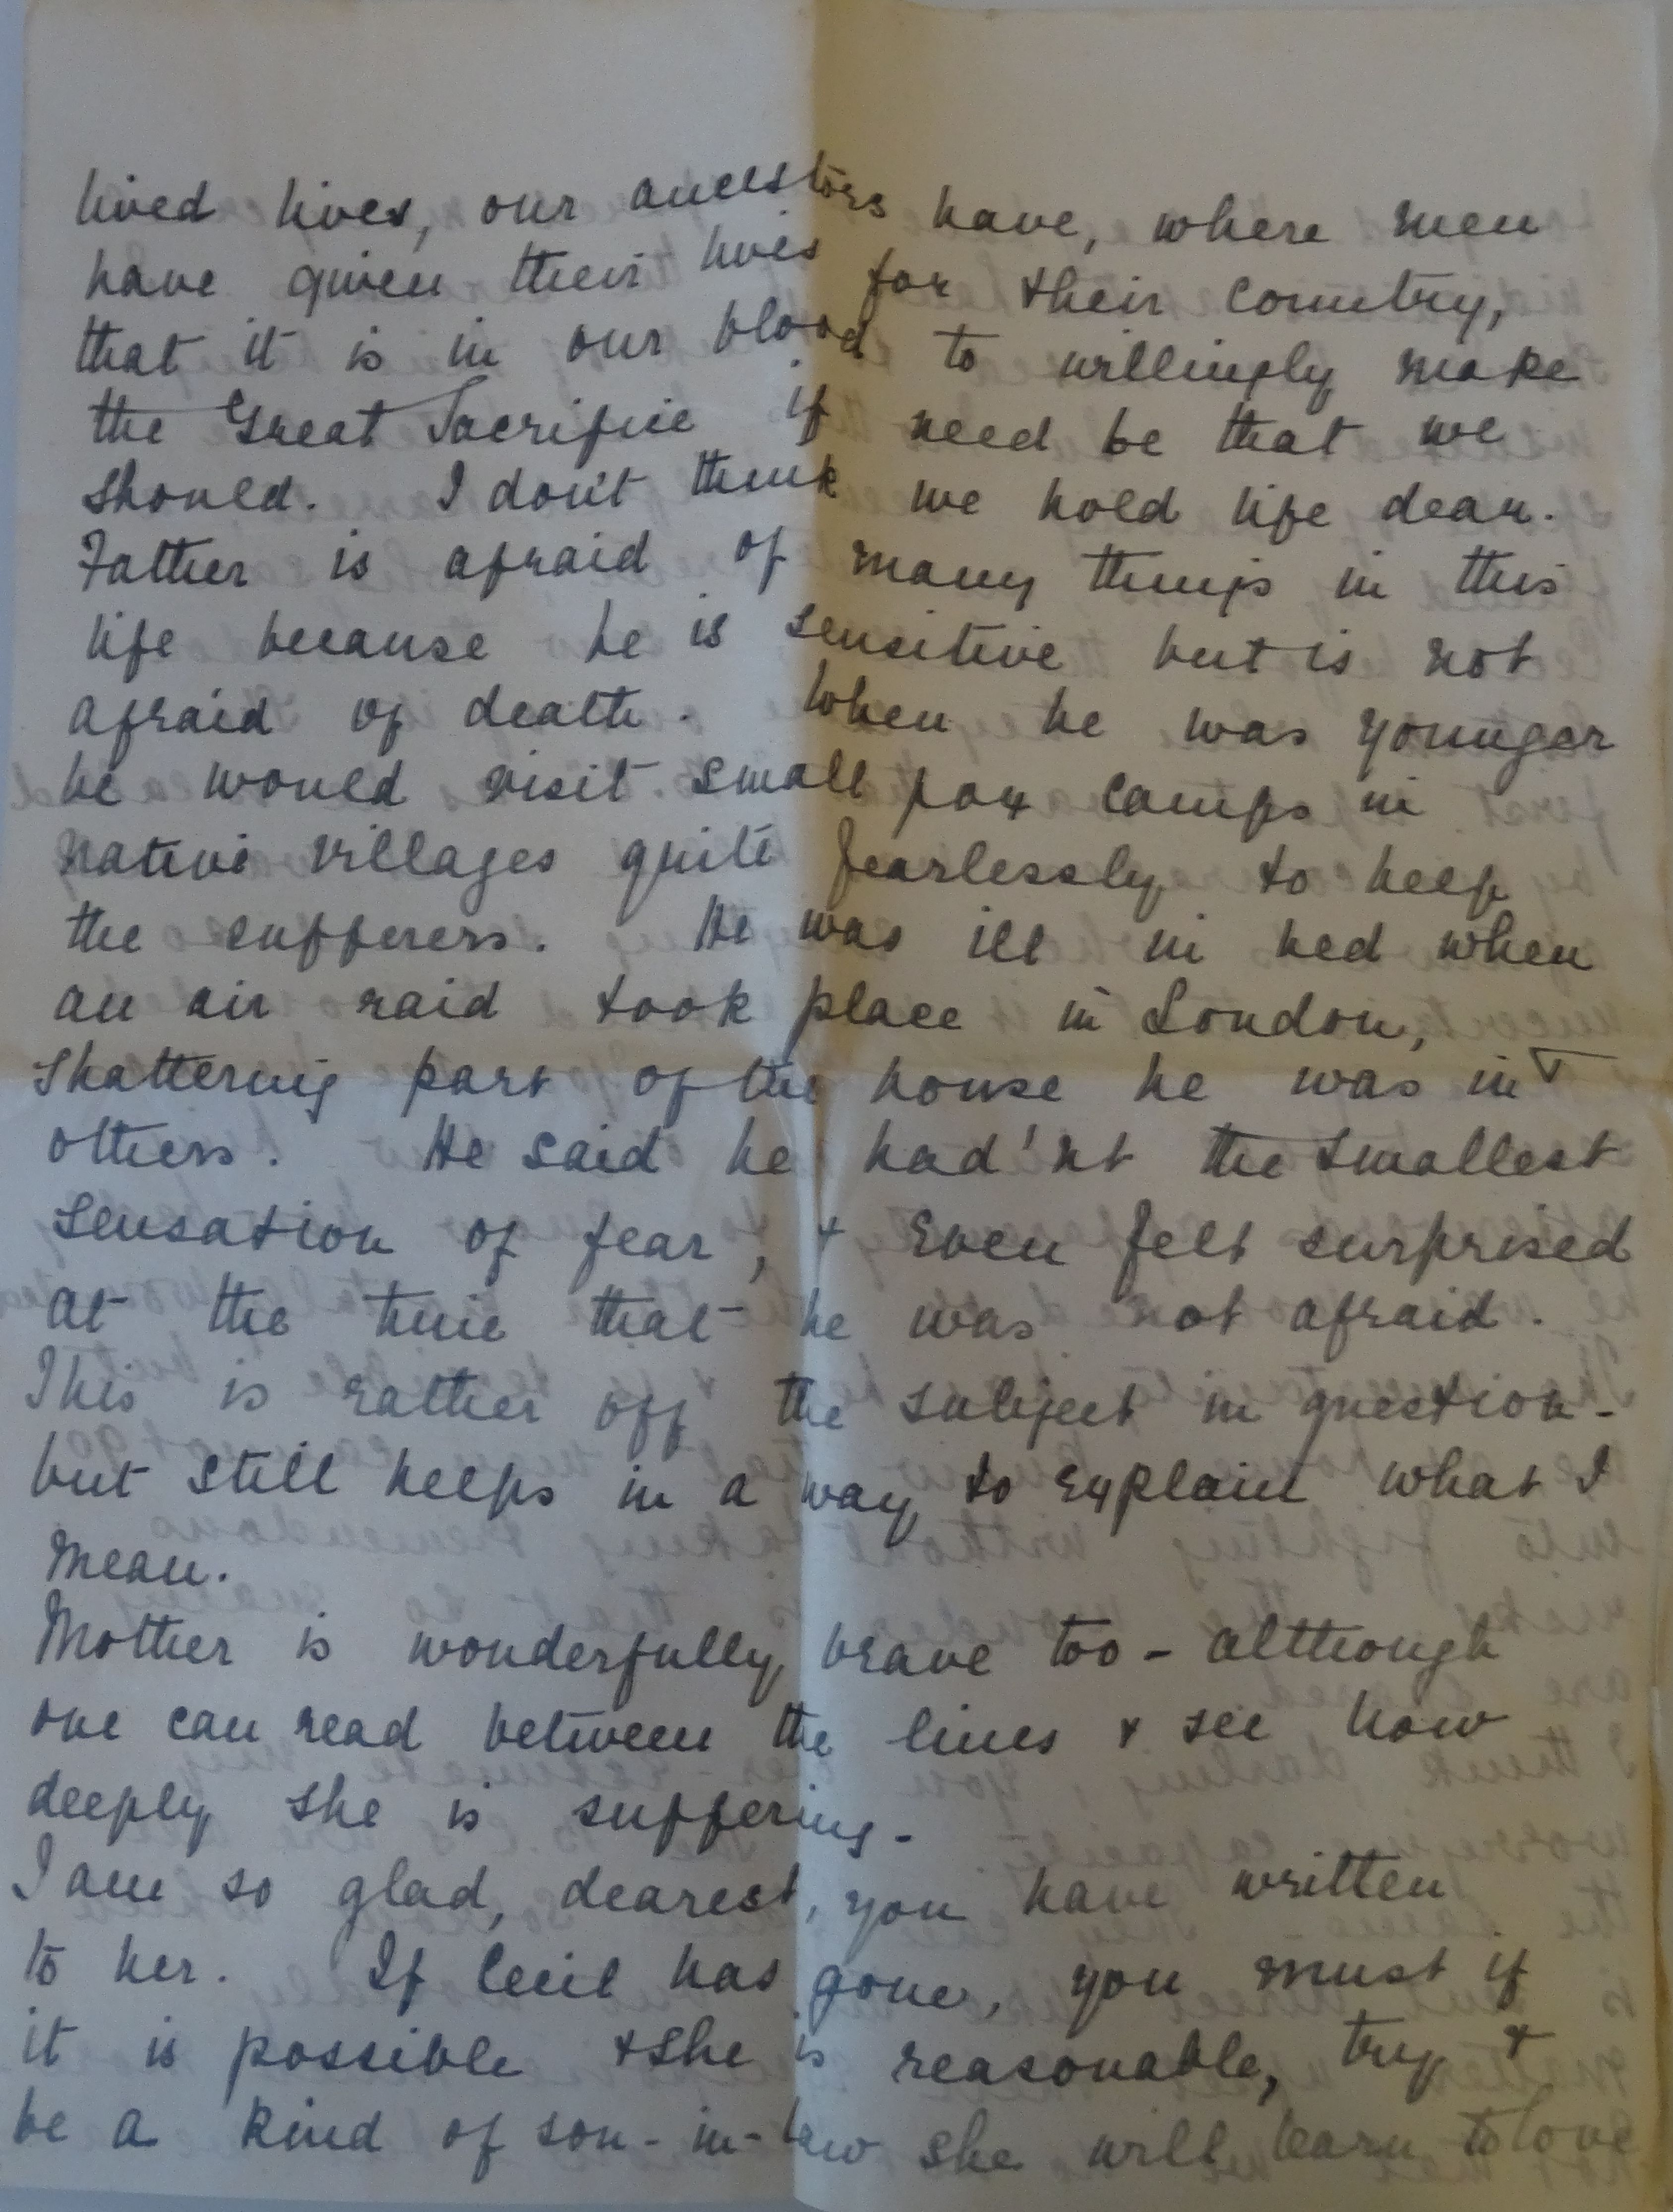 lived lives, our ancestors have, where men
have given their lives for their country,
that it is in our blood to willingly make
the Great Sacrifice if need be that we
should. I don't think we hold life dear.
Father is afraid of many things in this
life because he is sensitive but is not
afraid of death. When he was younger
he would visit small pox camps in
native villages quite fearlessly to help
the sufferers. He was ill in bed when
an air raid took place in London,
shattering part of the house he was in &
others. He said he had'nt the smallest
sensation of fear, & even felt surprised
at the time that he was not afraid.
This is rather off the subject in question -
but still helps in a way to explain what I
mean.
Mother is wonderfully brave too - although
one can read between the lines & see how
deeply she is suffering -
I am so glad, dearest, you have written
to her. If Cecil has gone, you must if
it is possible & she is reasonable, try &
be a kind of son-in-law she will learn to love